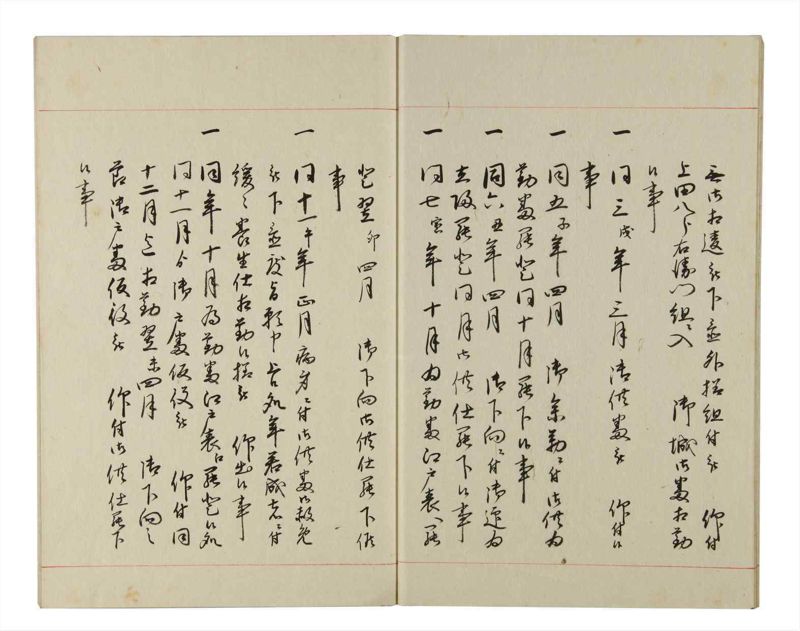 無御相違被下置外搭組付被 仰付
上田八郎右衛門組ニ入 御城御番相勤
候事
一 同三戌年三月御供番被 仰付候
事
一 同五子年四月 御参勤ニ付御供為
勤番罷登同十月罷下候事
一 同六丑年四月 御下向ニ付御迎為
罷登同月御供仕罷下候事
一 同七寅年十月為勤番江戸表へ罷
登翌卯四月 御下向御供仕罷下候
事
一 同十一午年正月病身ニ付御供番御赦免
被下置度旨願申上候処年若成者ニ付
緩々養生仕相勤候様被 仰出候事
一 同年十月為勤番江戸表へ罷登候処
同十一月より御之番仮役被 仰付同
十二月迄相勤翌未四月 御下向之
節御之番仮役被 仰付御供仕罷下
候事